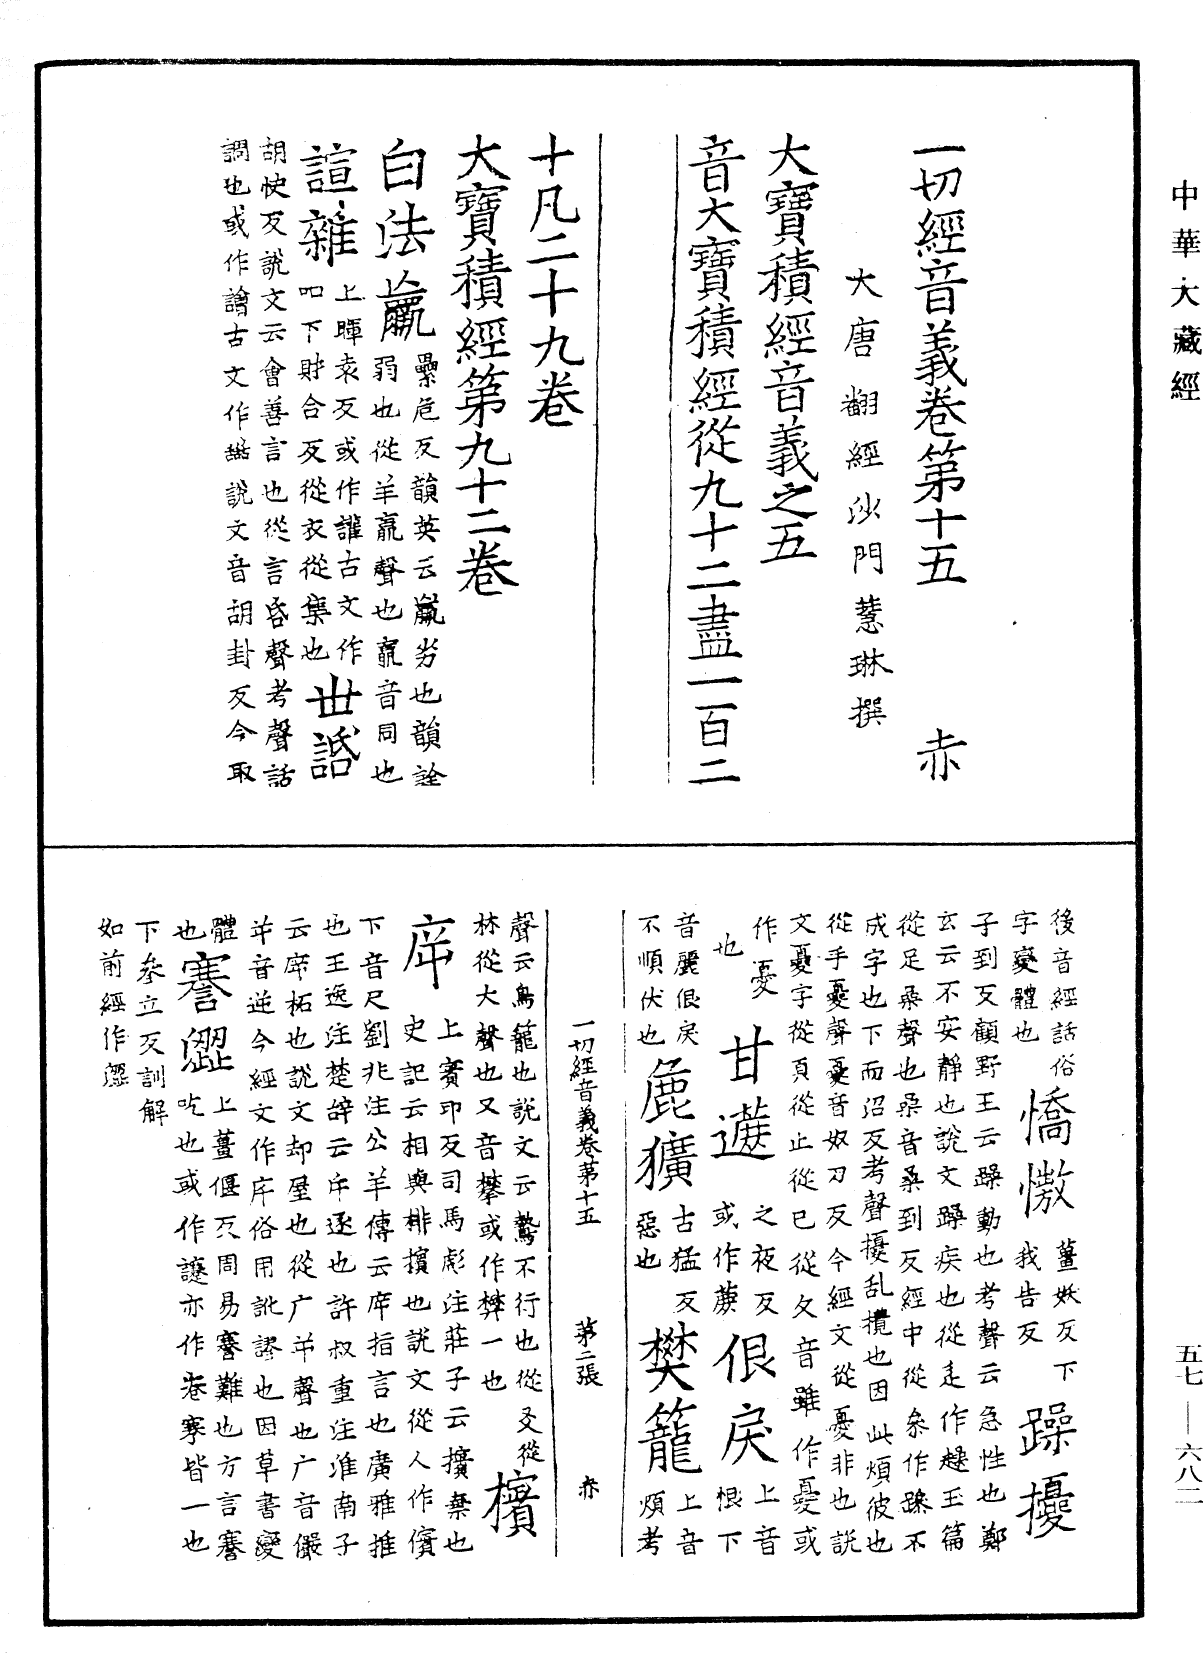 中華大藏經
一切經音義卷第十五　赤
大唐翻經沙門慧琳撰
大寶積經音義之五
音大寶積經從九十二盡一百二
十凡二十九卷
大寶積經第九十二卷
白法羸
纍危反韻英云羸劣也韻詮
弱也從羊𣎆聲也𣎆音同也
諠雜
上暉袁反或作讙古文作
吅下財合反從衣從集也
世話
胡快反說文云會善言也從言𠯑聲考聲話
調也或作譮古文作𧪲說文音胡卦反今取
後音經話俗
字變體也
憍慠
薑妖反下
我告反
躁擾
子到反顧野王云躁動也考聲云急性也鄭
玄云不安靜也說文躁疾也從走作趮玉篇
從足喿聲也喿音桑到反經中從叅作𨄂不
成字也下而沼反考聲擾乱攪也因此煩彼也
從手憂聲夒音奴刀反今經文從憂非也說
文夒字從頁從止從巳從夊音雖作憂或
作憂
也
甘蔗
之夜反
或作䕂
佷戾
上音
恨下
音麗佷戾
不順伏也
麁獷
古猛反
惡也
樊籠
上音
煩考
一切經音義卷第十五　第二張　赤
聲云鳥籠也說文云鷙不行也從㸚從
林從大聲也又音攀或作樊一也
擯
㡿
上賓印反司馬彪注莊子云擯棄也
史記云相與排擯也說文從人作儐
下音尺劉兆注公羊傳云㡿指言也廣雅推
也王逸注楚辭云㡿逐也許叔重注淮南子
云㡿柘也說文却屋也從广屰聲也广音儼
屰音逆今經文作斥俗用訛謬也因草書變
體
也
謇澀
上蹇偃反周易謇難也方言謇
吃也或作讓亦作𡫳㝩皆一也
下參立反訓解
如前經作澀
五七—六八二